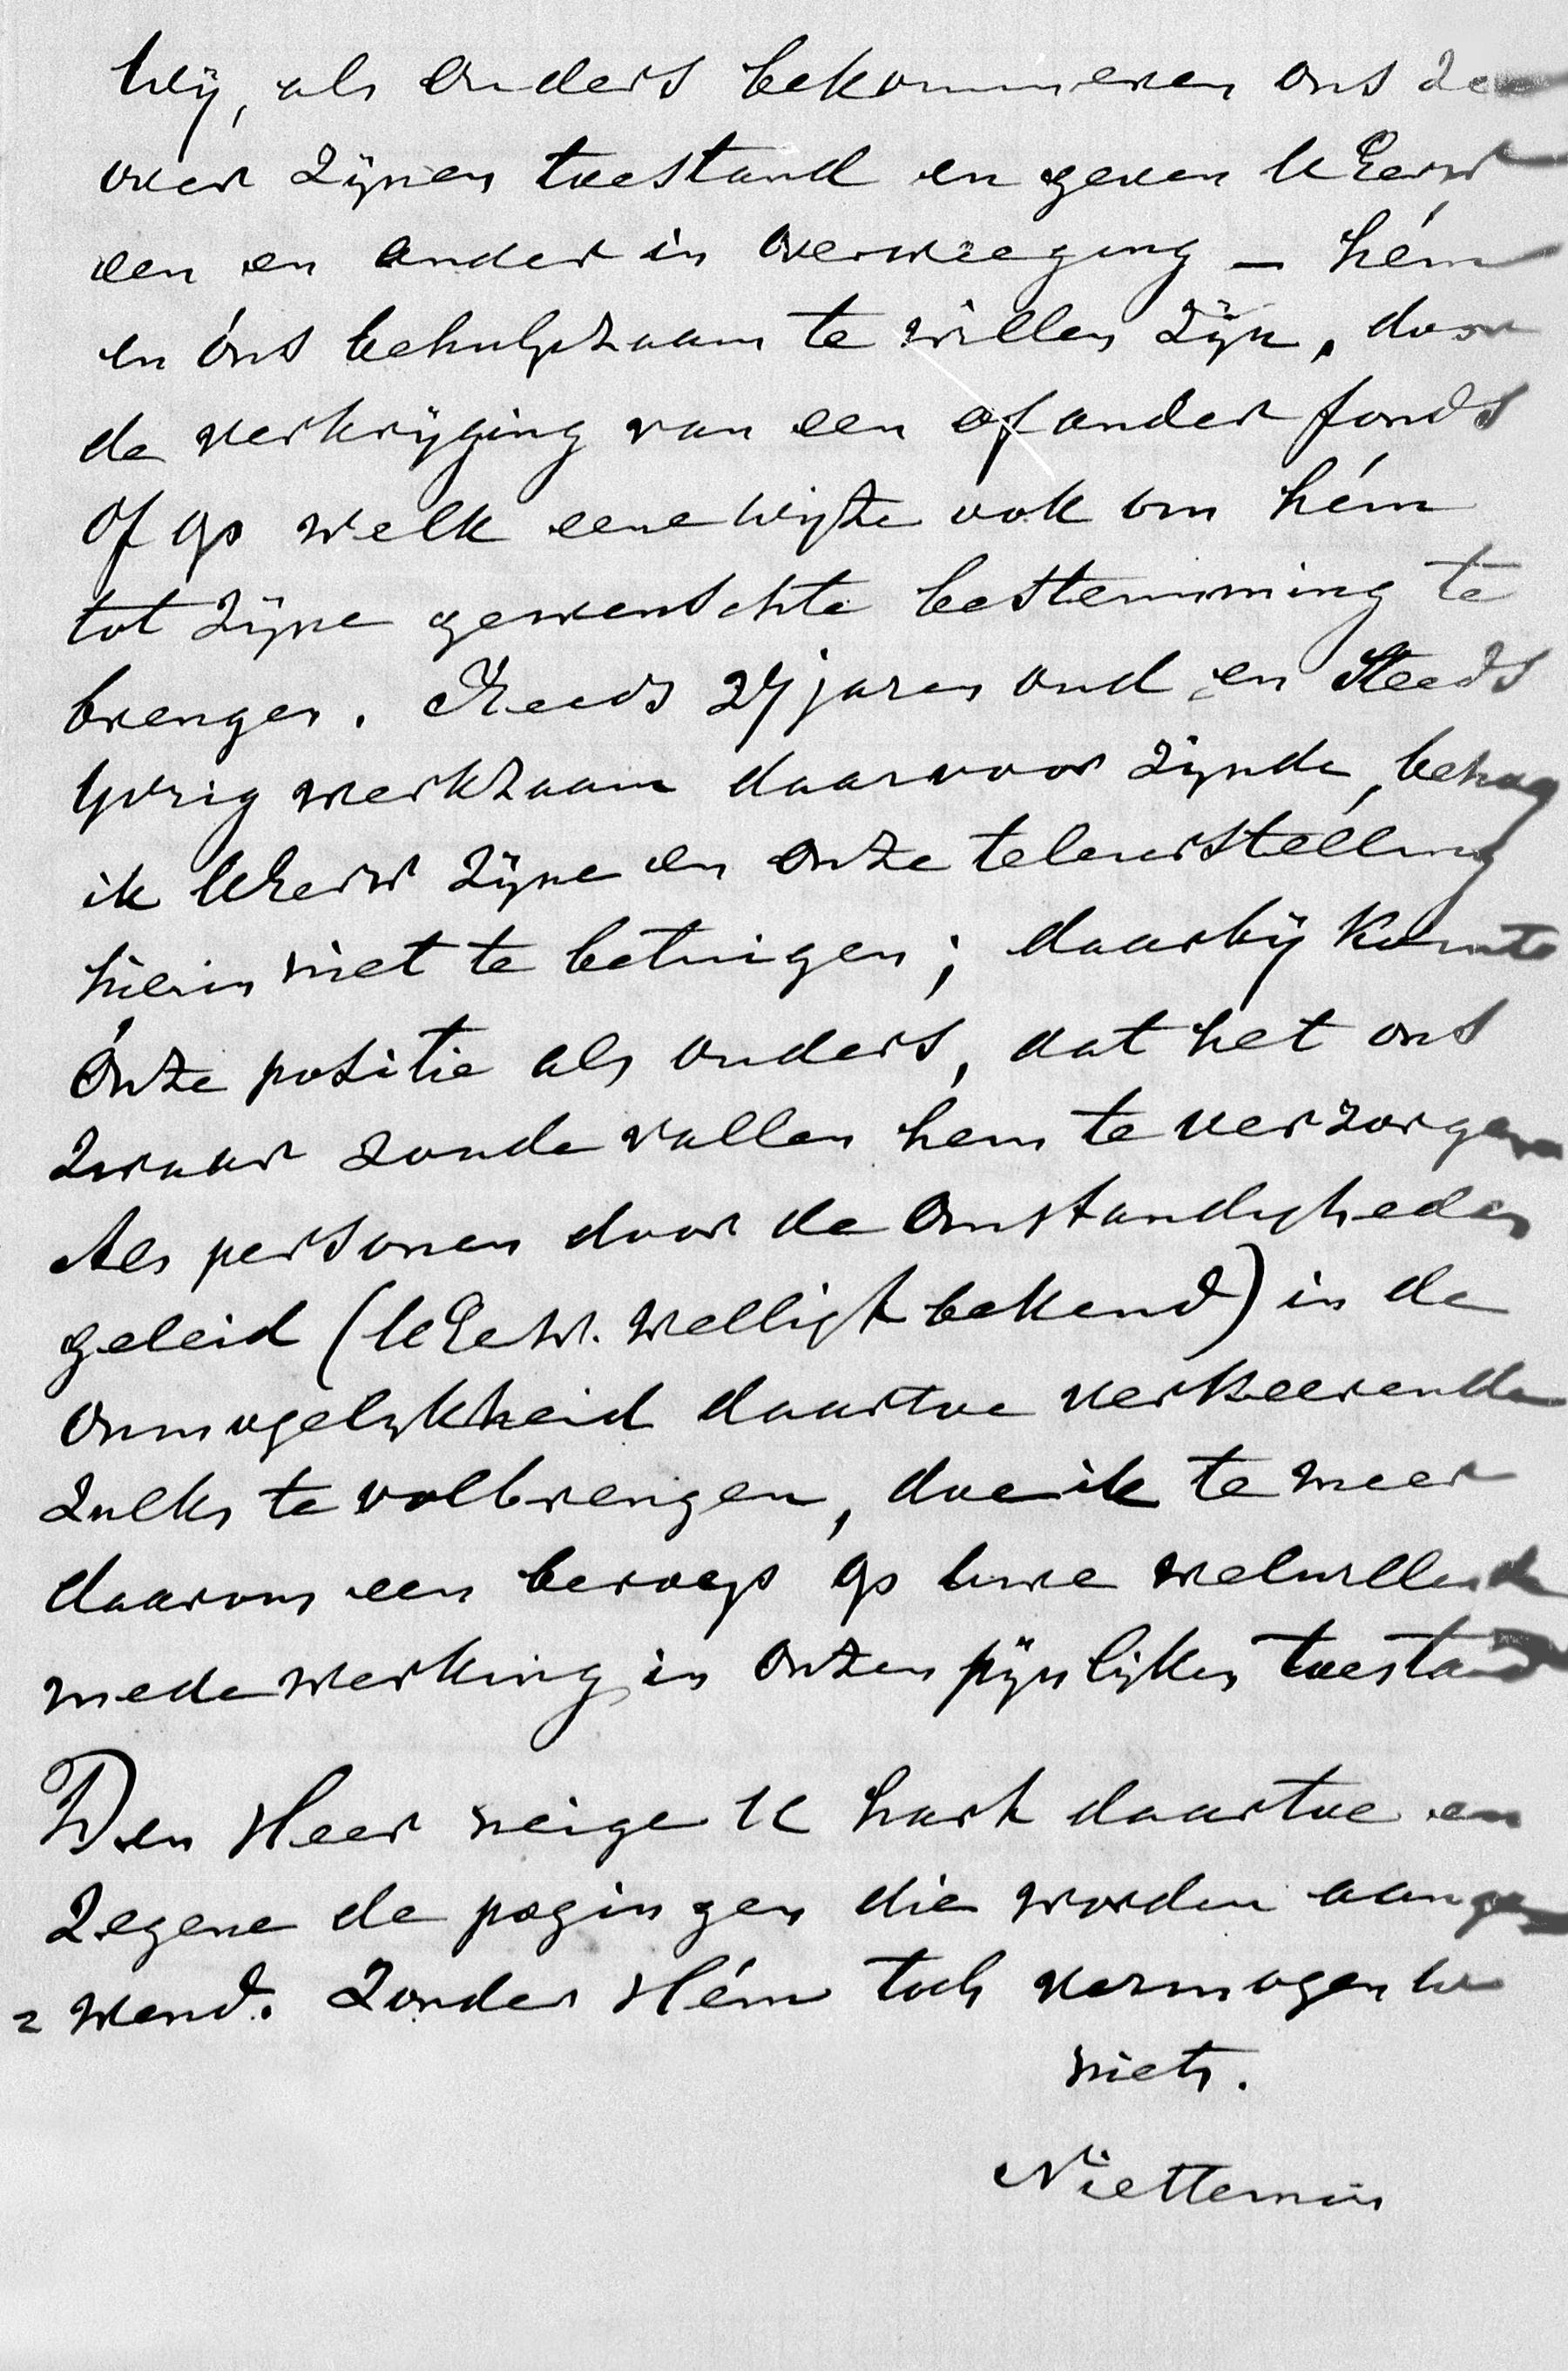 Wij, als Ouders bekommeren ons
over zijnen toestand en geven UEerw
een en ander in overweeging – hém
en óns behulpzaam te willen zijn, door
de verkrijging van een of ander fonds
of op welk eene wijze ook om hém
tot zijne gewenschte bestemming te
brengen. Reeds 24 jaren oud en Steeds
yvrig werkzaam daarvoor zijnde, behoef
ik UEerw zijne en onze teleurstelling
hierin niet te betuigen; daarbij komt
Ónze positie als ouders, dat het ons
zwaar zoude vallen hem te verzorgen
Als personen door de Omstandigheden
geleid (UEerw. Welligt bekend) in de
Onmogelykheid daartoe verkeerende
Zulks te volbrengen, doe ik te meer
daarom een beroep op Uwe welwillende
medewerking in Onzen pijnlijken toestand
Den Heer neige U hart daartoe en
Zegene de pogingen die worden aange
=wend. Zonder Hém toch vermogen we
niets.
Niettemin